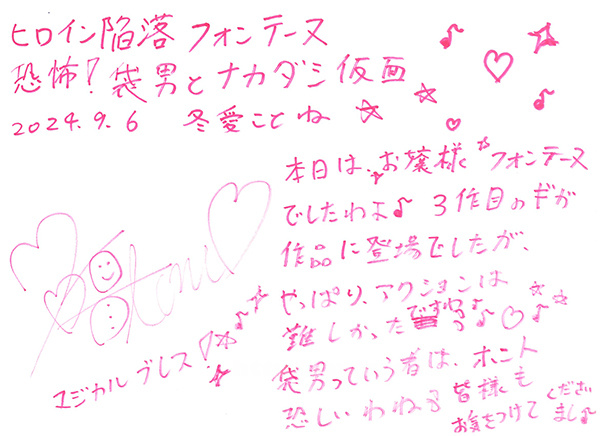 ヒロイン陥落 フォンテーヌ
恐怖！袋男とナカダシ仮面
2024.9.6 冬愛ことね
本日は、お嬢様 フォンテーヌ
でしたわよ♪ 3作目のギガ
作品に登場でしたが、
やっぱり、アクションは
難しかった
袋男っていう者は、ホント
恐しいわね
皆様も
お気をつけて くださいまし♪
エジカル ブレス